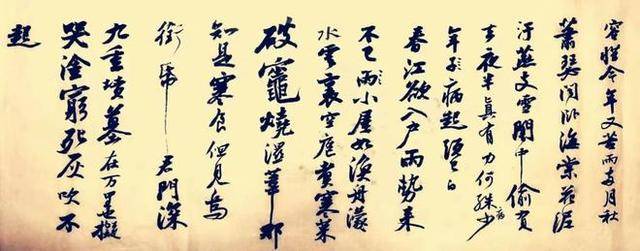 容惜今年又苦雨兩月秋
蕭瑟聞臥海棠花泥
汙燕支雪闇中偷負
去夜半真有力何殊病少
年子病起頭已白
春江欲入戶雨勢來
不已雨小屋如漁舟濛
水雲裏空庖煮寒菜
破竈燒濕葦那
知是寒食但見烏
銜帋君門深
九重墳墓在万里擬
哭塗窮死灰吹不
起